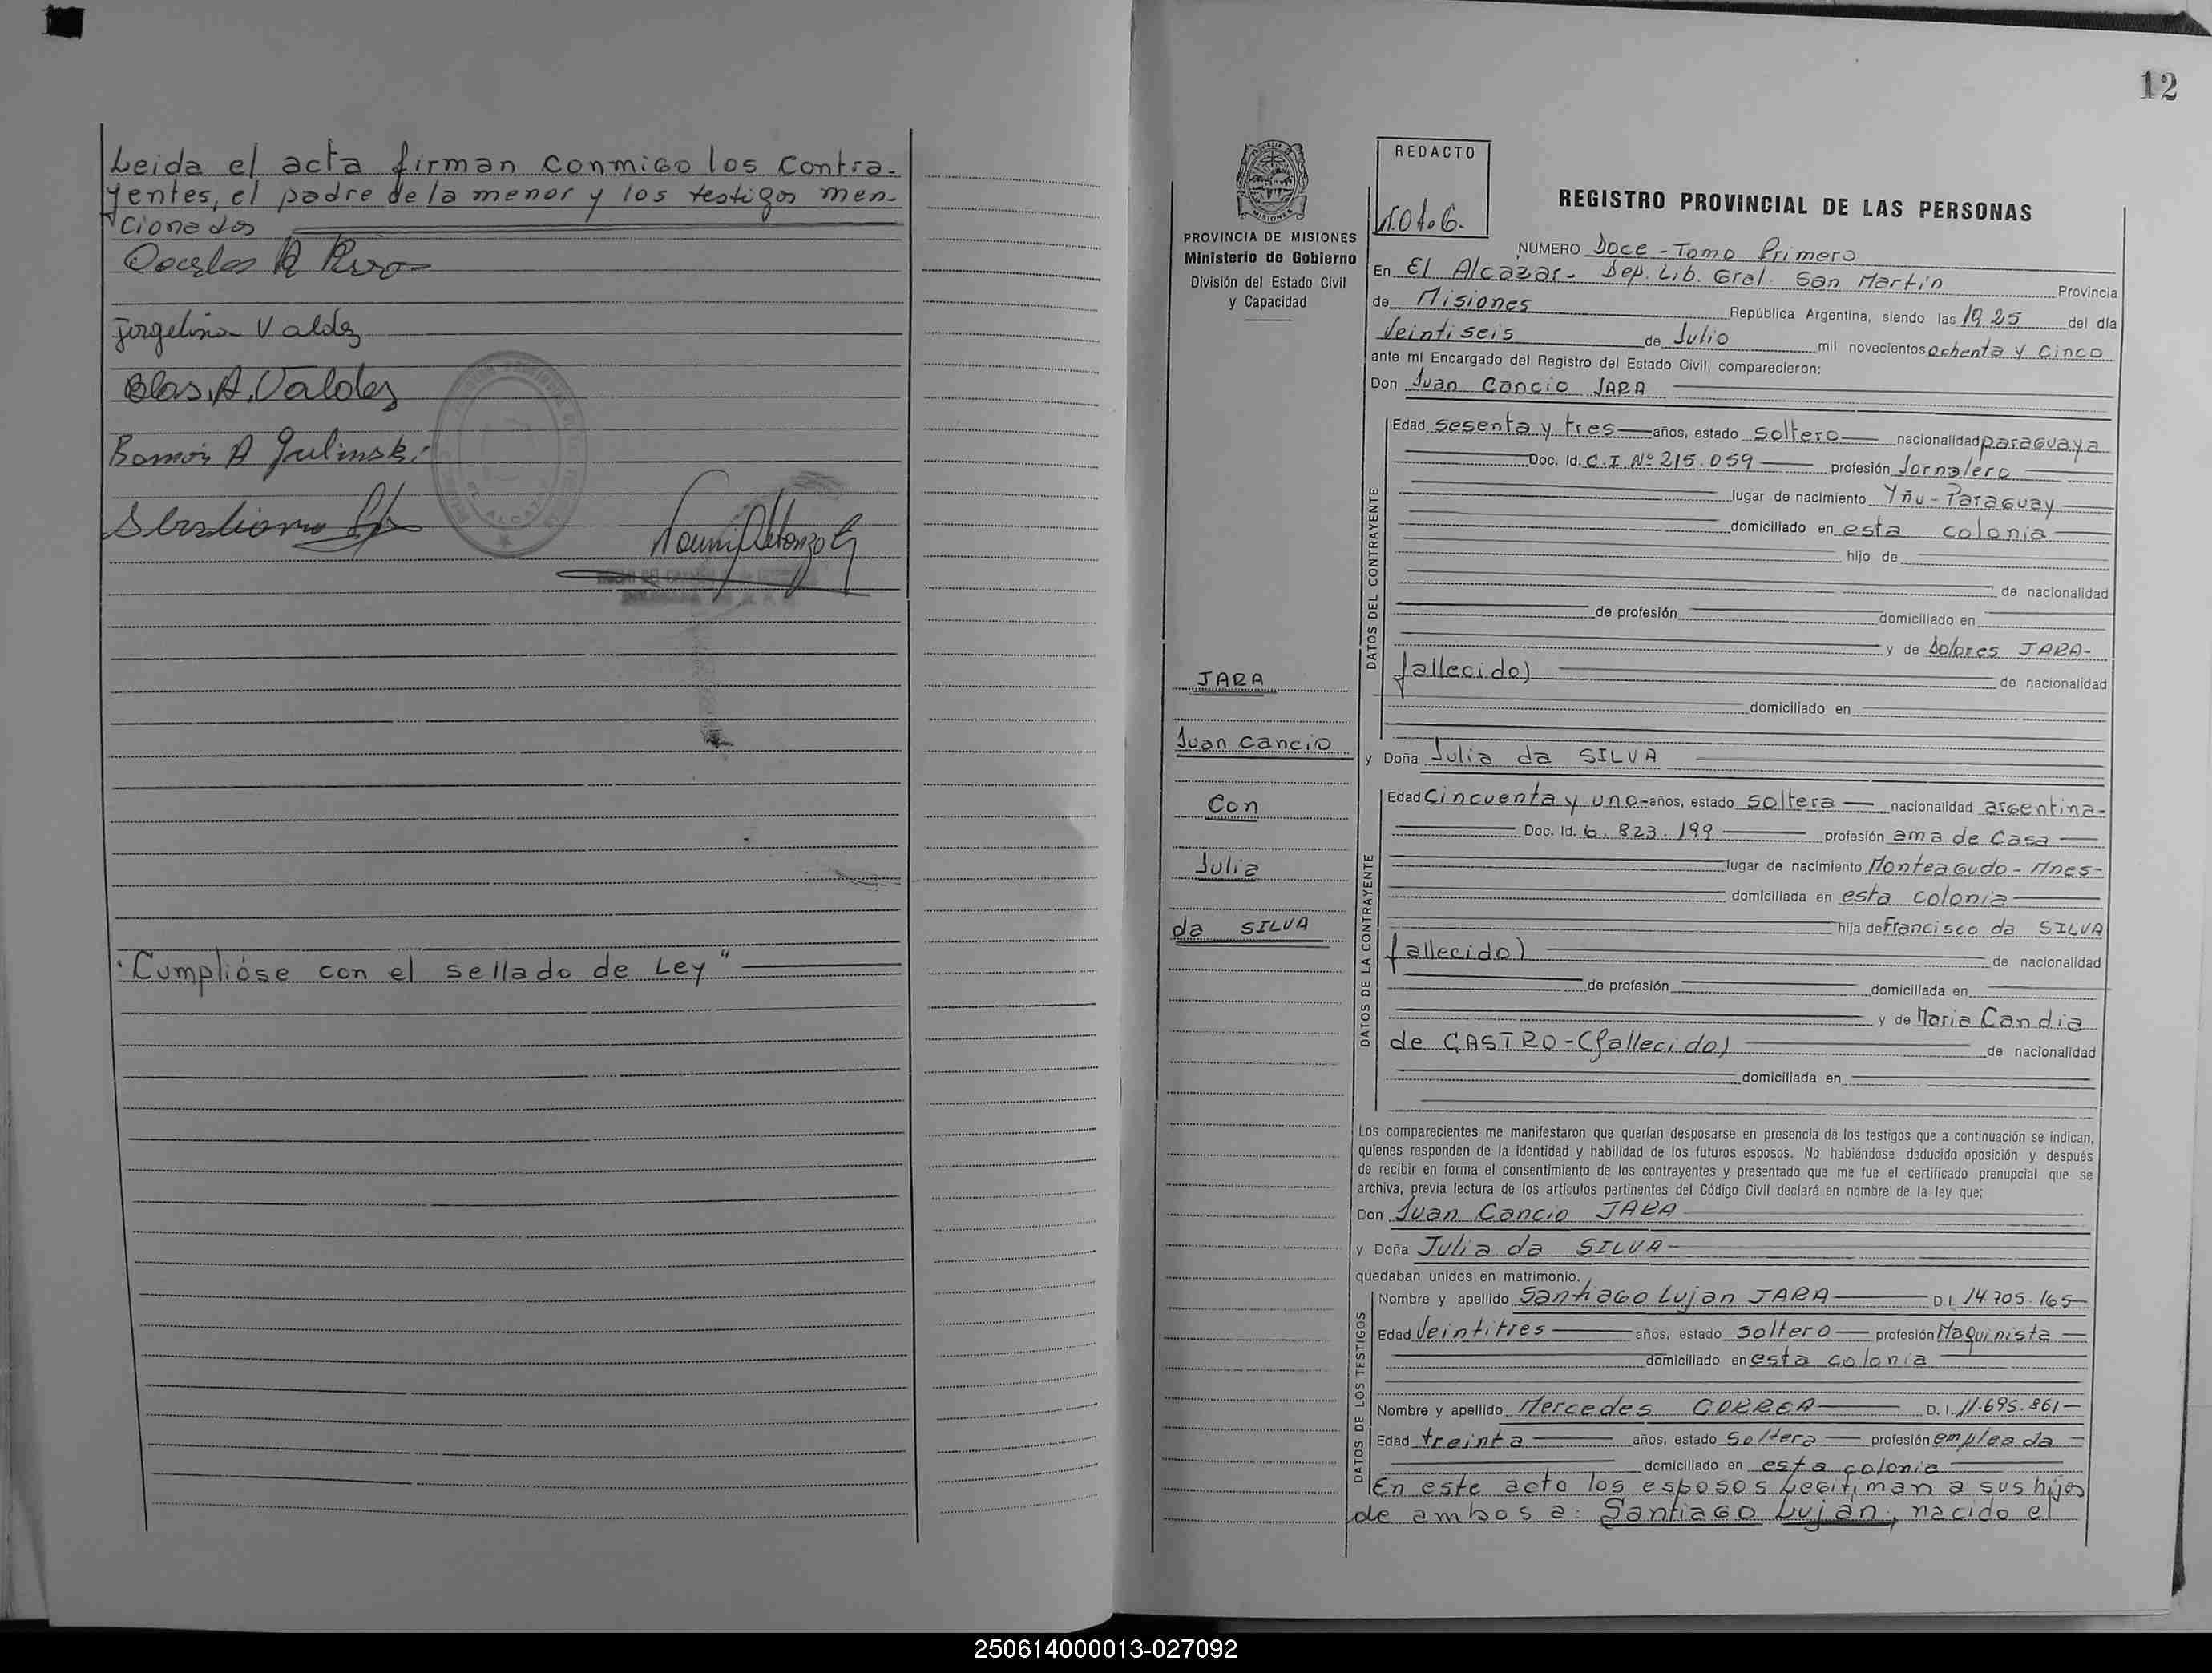 Leida el acta firman conmigo los contra-
yentes, el padre de la menor y los testigos men-
cionados
Jorgelina Valdez
Blas A. Valdez
Ramón A Julinski
"Cumplióse con el sellado de Ley"
12
PROVINCIA DE MISIONES
Ministerio de Gobierno
División del Estado Civil
y Capacidad
JARA
Juan Cancio
Con
Julia
da SILVA
REDACTO
REGISTRO PROVINCIAL DE LAS PERSONAS
NUMERO Doce - Tomo Primero
En El Alcazar - Dep. Lib. Gral. San Martín Provincia
de Misiones República Argentina, siendo las 19,25 del día
Veintiseis de Julio mil novecientos ochenta y cinco
ante mí Encargado del Registro del Estado Civil, comparecieron:
Don Juan Cancio JARA
DATOS DEL CONTRAYENTE
Edad sesenta y tres años, estado soltero nacionalidad paraguaya
Doc. Id. C.I Nº 215.059 profesión Jornalero
lugar de nacimiento Yñu - Paraguay
domiciliado en esta colonia
hijo de
de nacionalidad
de profesión domiciliado en
y de Dolores JARA-
fallecido) de nacionalidad
domiciliado en
y Doña Julia da SILVA
DATOS DE LA CONTRAYENTE
Edad Cincuenta y uno años, estado soltera nacionalidad argentina-
Doc. Id. 6.823.199 profesión ama de Casa
lugar de nacimiento Monteagudo - Mnes-
domiciliada en esta colonia
hija de Francisco da SILVA
fallecido) de nacionalidad
de profesión domiciliada en
y de Maria Candia
de CASTRO-(fallecida) de nacionalidad
domiciliada en
Los comparecientes me manifestaron que querían desposarse en presencia de los testigos que a continuación se indican,
quienes responden de la identidad y habilidad de los futuros esposos. No habiéndose deducido oposición y después
de recibir en forma el consentimiento de los contrayentes y presentado que me fue el certificado prenupcial que se
archiva, previa lectura de los artículos pertinentes del Código Civil declaré en nombre de la ley que:
Don Juan Cancio JARA
y Doña Julia da SILVA
quedaban unidos en matrimonio.
DATOS DE LOS TESTIGOS
Nombre y apellido Santiago Lujan JARA D.I. 14.705.165
Edad Veintitres años, estado soltero profesión Maquinista
domiciliado en esta colonia
Nombre y apellido Mercedes CORREA D.I. 11.695.861
Edad treinta años, estado Soltera profesión empleada
domiciliado en esta colonia
En este acto los esposos Legitiman a sus hijos
de ambos a: Santiago Luján, nacido el
250614000013-027092